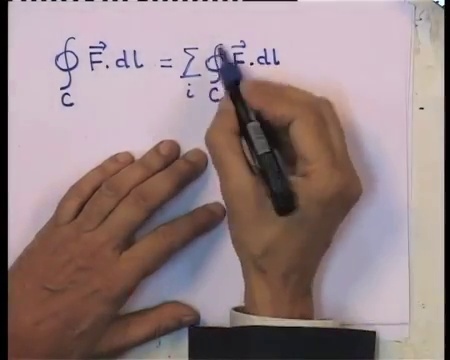 ∮_C F⃗ . dl = ∑_i ∮_C F⃗ . dl